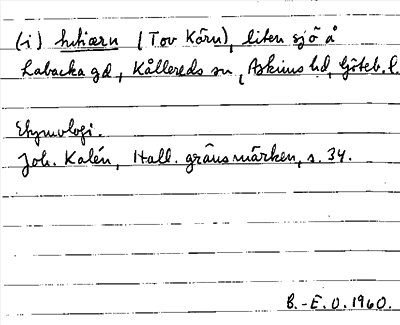 (i) huhiærn (Tov Körn), liten sjö å
Labacka gd, Kållereds sn, Askims hd, Göteb. l.
Etymologi.
Joh. Kalén, Hall. gränsmärken, s. 34.
B.-E. O. 1960.